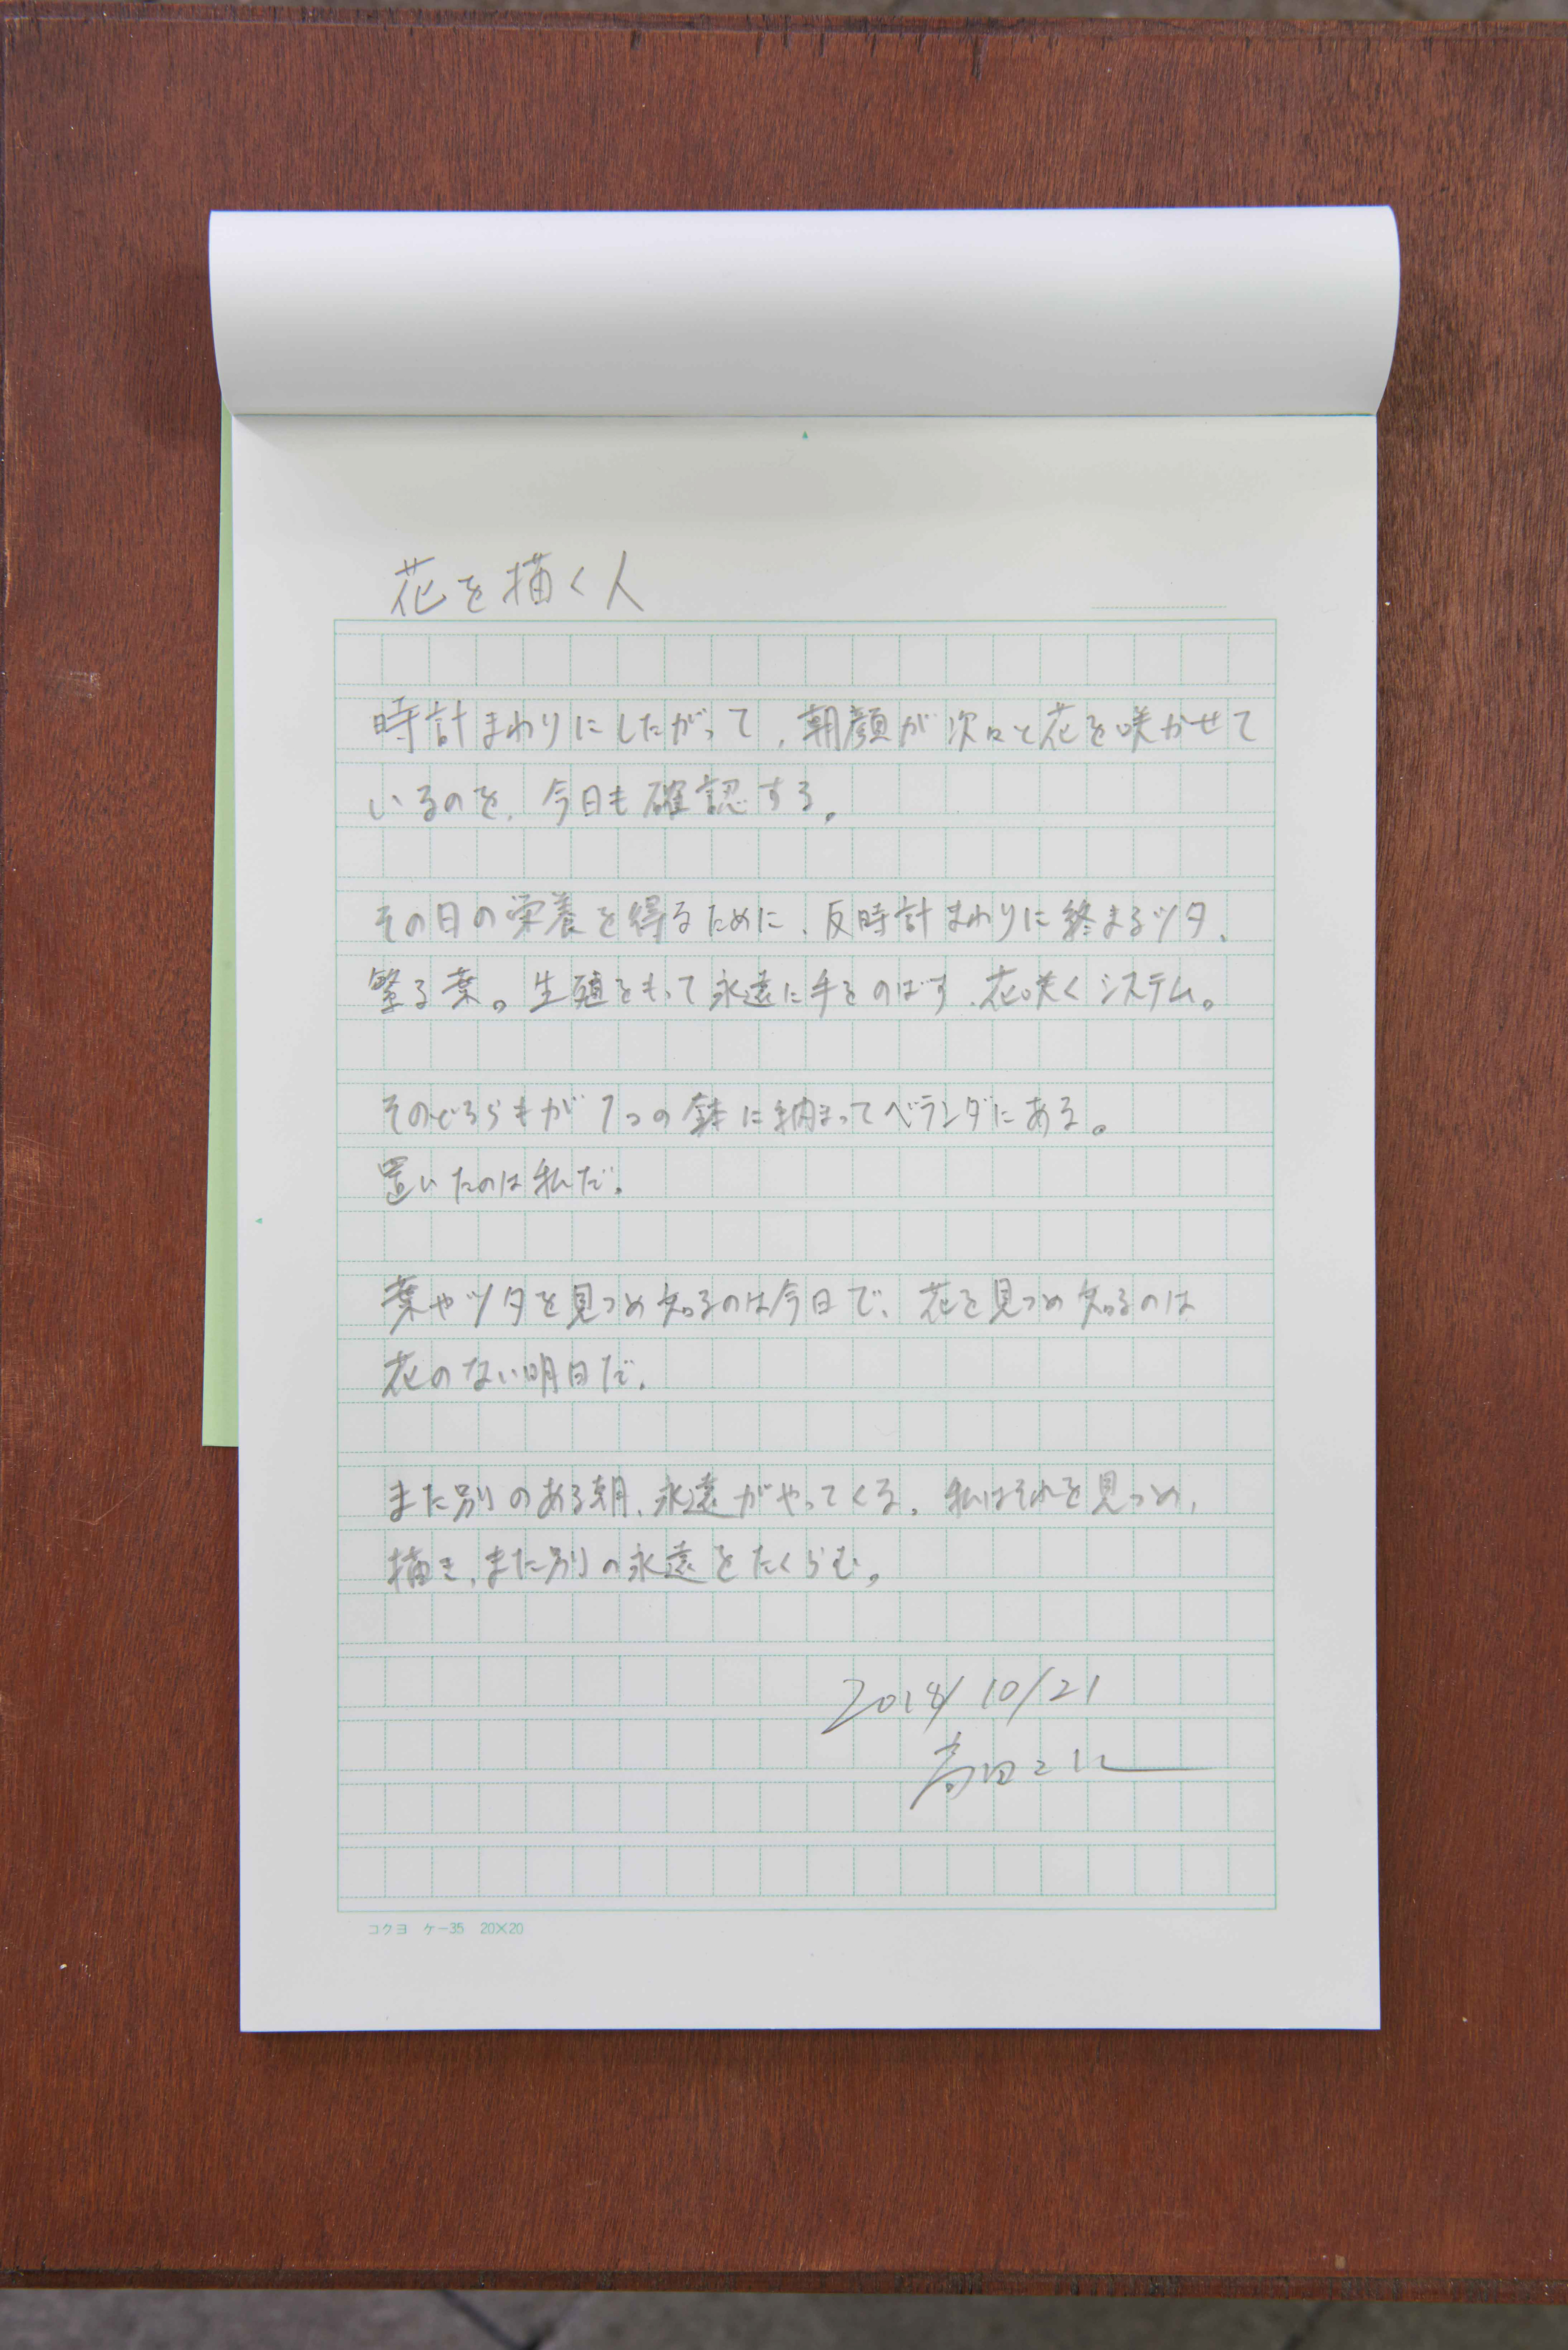 花を描く人
時計まわりにしたがって、朝顔が次々と花を咲かせて
いるのを、今日も確認する。
その日の栄養を得るために、反時計まわりに終まるツタ、
繁る葉。生殖をもって永遠に手をのばす、花咲くシステム。
そのどちらもが1つの鉢に納まってベランダにある。
置いたのは私だ。
葉やツタを見つめ知るのは今日で、花を見つめ知るのは
花のない明日だ。
また別のある朝、永遠がやってくる。私はそれを見つめ、
描き、また別の永遠をたくらむ。
2018/10/21
高田
コクヨ ケー35 20×20